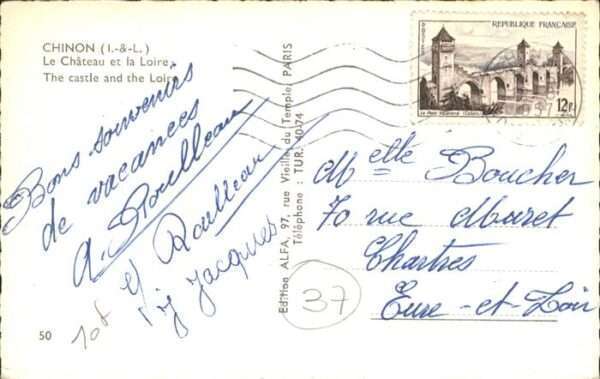 CHINON (I.-&-L.)
Le Château et la Loire
The castle and the Loire
Bons souvenirs
de vacances
A. Roulleau
Roulleau
Jacques
50
37
Edition ALFA, 97, rue Vieille du Temple, PARIS
Téléphone : TUR. 40-74
REPUBLIQUE FRANÇAISE
12F
Melle Boucher
70 rue Muret
Chartres
Eure-et-Loir